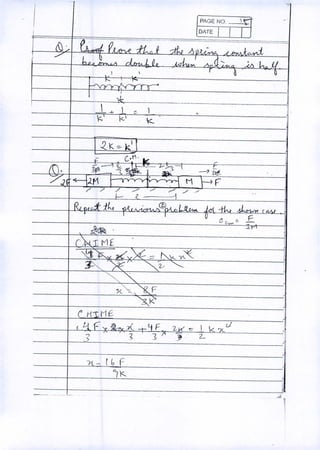 PAGE NO.
DATE
Q. Proof Prove that the spring constant
becomes double when spring is half.
k' k'
k
1/k' + 1/k' = 1/k
2K = k'
Q.
C.M.
F F
2F 2M K M F
Repeat the previous problem for the shown case.
a_cm = F/3M
CWIME
x = 8F/3K
CWIME
4F/3 × x/3 + 4F/3 × 2x/3 = 1/2 k x²
x = 16F/9K